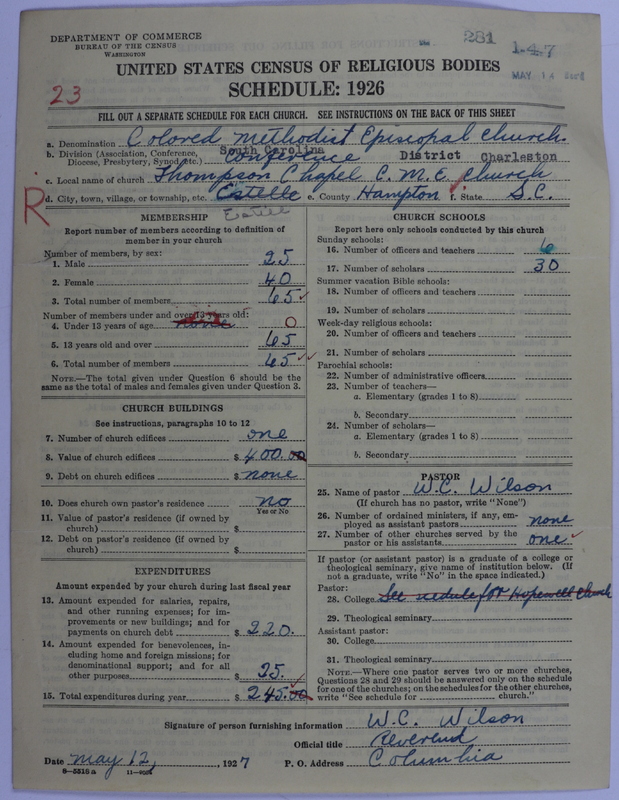 DEPARTMENT OF COMMERCE
BUREAU OF THE CENSUS
WASHINGTON
281
1-47
MAY 14
UNITED STATES CENSUS OF RELIGIOUS BODIES
SCHEDULE: 1926
23
FILL OUT A SEPARATE SCHEDULE FOR EACH CHURCH. SEE INSTRUCTIONS ON THE BACK OF THIS SHEET
a. Denomination Colored Methodist Episcopal Church.
b. Division (Association, Conference, Diocese, Presbytery, Synod, etc.) South Carolina Conference District Charleston
c. Local name of church Thompson Chapel C. M. E. Church
R
d. City, town, village, or township, etc. Estelle e. County Hampton f. State S.C.
Estill
MEMBERSHIP
Report number of members according to definition of
member in your church
Number of members, by sex:
1. Male 25
2. Female 40
3. Total number of members 65
Number of members under and over 13 years old:
4. Under 13 years of age none 0
5. 13 years old and over 65
6. Total number of members 65
NOTE.—The total given under Question 6 should be the
same as the total of males and females given under Question 3.
CHURCH BUILDINGS
See instructions, paragraphs 10 to 12
7. Number of church edifices one
8. Value of church edifices $ 400.00
9. Debt on church edifices $ none
10. Does church own pastor's residence no
Yes or No
11. Value of pastor's residence (if owned by
church) $
12. Debt on pastor's residence (if owned by
church) $
EXPENDITURES
Amount expended by your church during last fiscal year
13. Amount expended for salaries, repairs,
and other running expenses; for im-
provements or new buildings; and for
payments on church debt $ 220.
14. Amount expended for benevolences, in-
cluding home and foreign missions; for
denominational support; and for all
other purposes $ 25.
15. Total expenditures during year $ 245.00
CHURCH SCHOOLS
Report here only schools conducted by this church
Sunday schools:
16. Number of officers and teachers 6
17. Number of scholars 30
Summer vacation Bible schools:
18. Number of officers and teachers
19. Number of scholars
Week-day religious schools:
20. Number of officers and teachers
21. Number of scholars
Parochial schools:
22. Number of administrative officers
23. Number of teachers—
a. Elementary (grades 1 to 8)
b. Secondary
24. Number of scholars—
a. Elementary (grades 1 to 8)
b. Secondary
PASTOR
25. Name of pastor W.C. Wilson
(If church has no pastor, write "None")
26. Number of ordained ministers, if any, em-
ployed as assistant pastors none
27. Number of other churches served by the
pastor or his assistants one
If pastor (or assistant pastor) is a graduate of a college or
theological seminary, give name of institution below. (If
not a graduate, write "No" in the space indicated.)
Pastor:
28. College See for Hopewell Church
29. Theological seminary
Assistant pastor:
30. College
31. Theological seminary
NOTE.—Where one pastor serves two or more churches,
Questions 28 and 29 should be answered only on the schedule
for one of the churches; on the schedules for the other churches,
write "See schedule for church."
Signature of person furnishing information W.C. Wilson
Official title Reverend
Date May 12, 1927 P. O. Address Columbia
8—5518a 11—9024